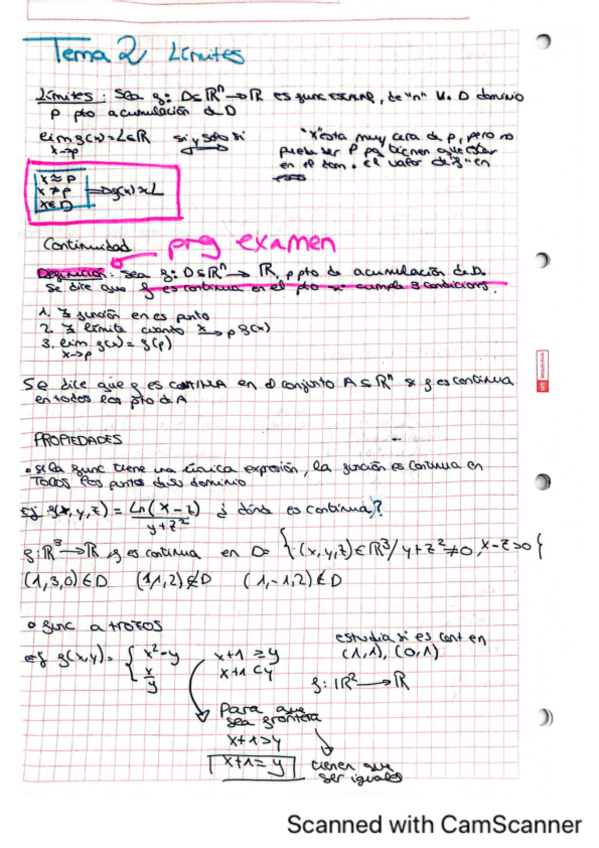 Tema 2 Límites
Límites: Sea f: D⊆ℝⁿ→ℝ es func escalar, de "n" v. D dominio
p pto acumulación de D
lim f(x)=L∈ℝ si y solo si "x" esta muy cerca de p, pero no
x→p puede ser P
en el dom. el valor de f en
x≈p
x≠p ⇒ f(x)≈L
x∈D
Continuidad prg examen
Definición: Sea f: D⊆ℝⁿ→ℝ, p pto de acumulación de D.
Se dice que f es continua en el pto si cumple 3 condiciones.
1. ∃ función en ese punto
2. ∃ límite cuando x→p f(x)
3. lim f(x) = f(p)
x→p
Se dice que f es continua en el conjunto A⊆ℝⁿ si f es continua
en todos los pto de A
PROPIEDADES
• si la func tiene una única expresión, la función es continua en
TODOS los puntos de su dominio
Ej f(x,y,z) = Ln(x-z) / y+z² ¿dónde es continua?
f: ℝ³→ℝ f es continua en D= {(x,y,z)∈ℝ³/ y+z²≠0, x-z>0{
(1,3,0)∈D (1,1,2)∉D (1,-1,2)∉D
• func a trozos
ej f(x,y)= { x²-y x+1≥y
x/y x+1<y
estudia si es cont en
(1,1), (0,1)
f: ℝ²→ℝ
Para que
sea frontera
x+1>y
x+1=y
tienen que
ser iguales
Scanned with CamScanner